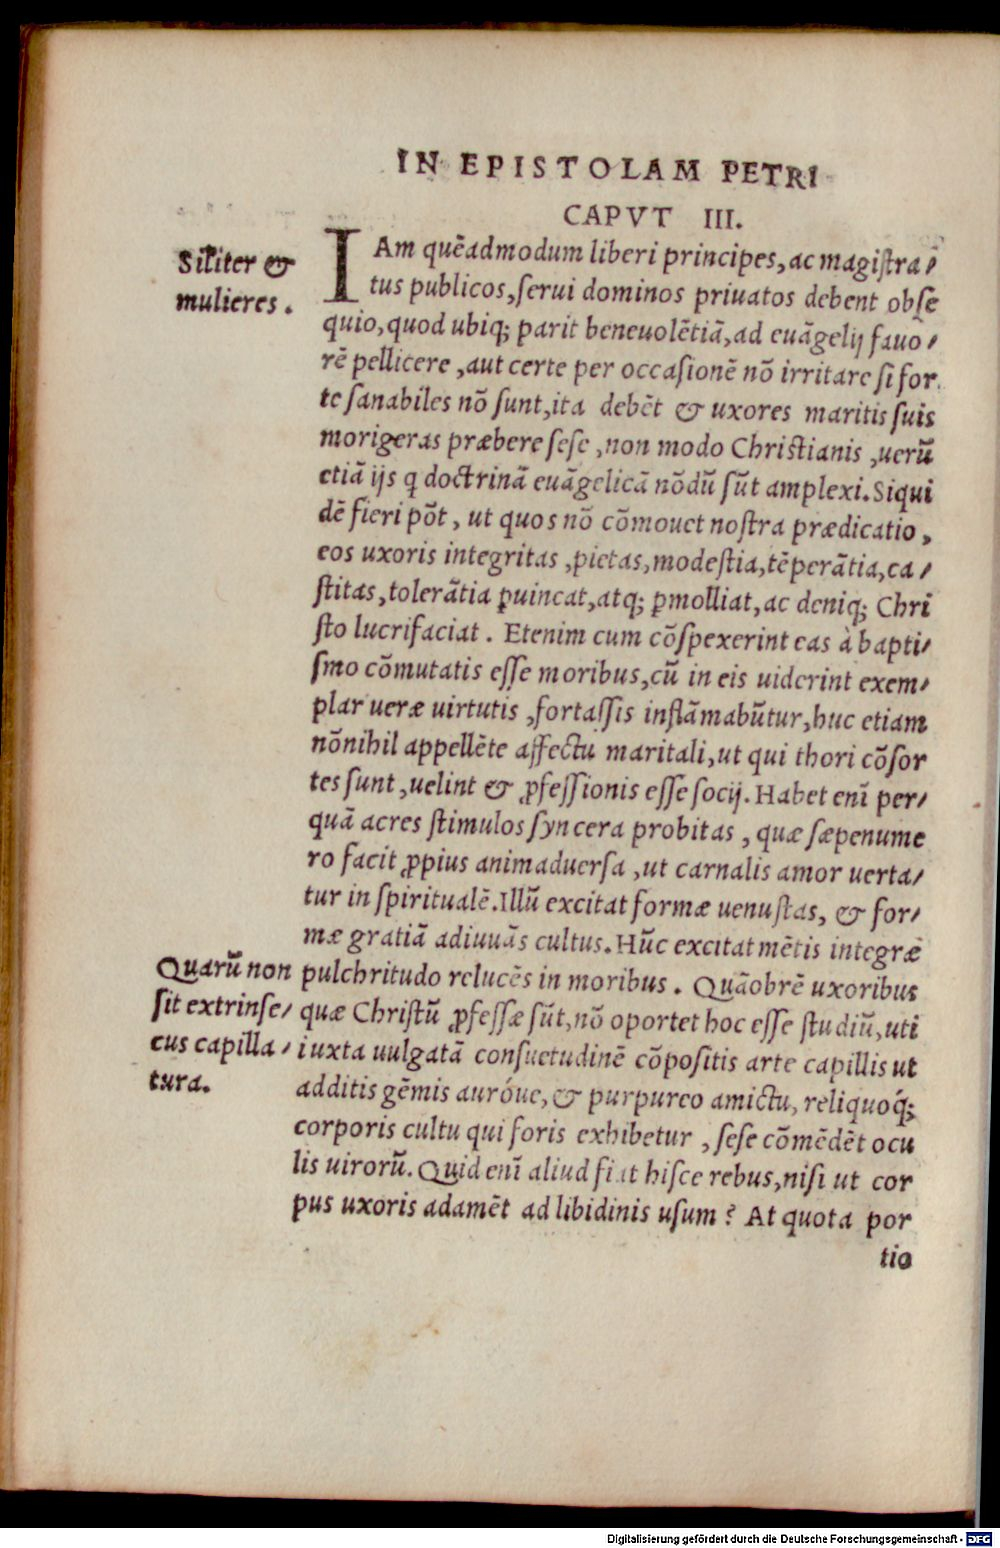 IN EPISTOLAM PETRI
CAPVT III.
Sil̃iter &
mulieres.
IAm quẽadmodum liberi principes, ac magiſtra/
tus publicos, ſerui dominos priuatos debent obſe
quio, quod ubiq; parit beneuolẽtiã, ad euãgelij fauo/
rẽ pellicere, aut certe per occaſionẽ nõ irritare ſi for
te ſanabiles nõ ſunt, ita debẽt & uxores maritis ſuis
morigeras præbere ſeſe, non modo Chriſtianis, uerũ
etiã ijs ꝗ doctrinã euãgelicã nõdũ ſũt amplexi. Siqui
dẽ fieri põt, ut quos nõ cõmouet noſtra prædicatio,
eos uxoris integritas, pietas, modeſtia, tẽperãtia, ca/
ſtitas, tolerãtia ꝑuincat, atq; ꝑmolliat, ac deniq; Chri
ſto lucrifaciat. Etenim cum cõſpexerint eas à bapti/
ſmo cõmutatis eſſe moribus, cũ in eis uiderint exem/
plar ueræ uirtutis, fortaſſis inflãmabũtur, huc etiam
nõnihil appellẽte affectu maritali, ut qui thori cõſor
tes ſunt, uelint & ꝓfeſſionis eſſe ſocij. Habet enĩ per/
quã acres ſtimulos ſyncera probitas, quæ ſæpenume
ro facit ꝓpius animaduerſa, ut carnalis amor uerta/
tur in ſpiritualẽ. Illũ excitat formæ uenuſtas, & for/
mæ gratiã adiuuãs cultus. Hũc excitat mẽtis integræ
Quarũ non
ſit extrinſe/
cus capilla/
tura.
pulchritudo relucẽs in moribus. Quãobrẽ uxoribus
quæ Chriſtũ ꝓfeſſæ ſũt, nõ oportet hoc eſſe ſtudiũ, uti
iuxta uulgatã conſuetudinẽ cõpoſitis arte capillis ut
additis gẽmis auróue, & purpureo amictu, reliquoq́;
corporis cultu qui foris exhibetur, ſeſe cõmẽdẽt ocu
lis uirorũ. Quid enĩ aliud fiat hiſce rebus, niſi ut cor
pus uxoris adamẽt ad libidinis uſum? At quota por
tio
Digitalisierung gefördert durch die Deutsche Forschungsgemeinschaft - DFG